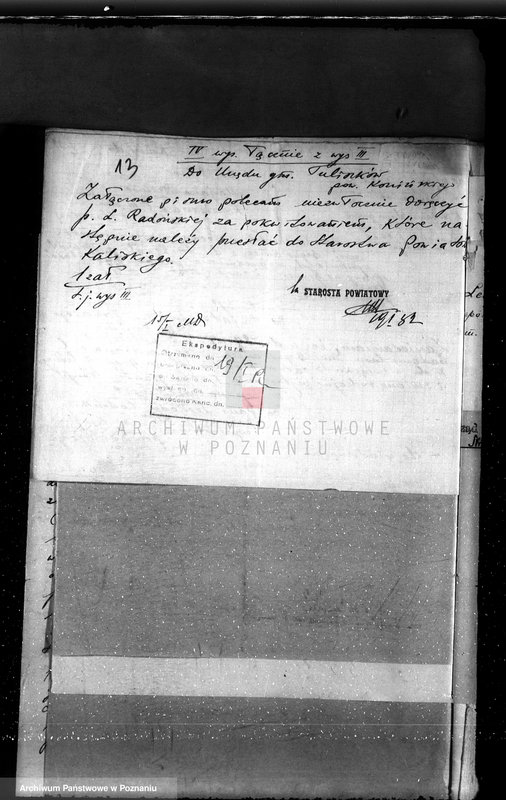 13
IV wys. Łącznie z wys III
Do Urzędu gm. Tuliszków
pow. Konińskiego
Załączone pismo polecam niezwłocznie doręczyć
p. L. Radońskiej za pokwitowaniem, które na
stępnie należy przesłać do Starostwa Powiatow
Kaliskiego.
1 zał
t. j. wys III
STAROSTA POWIATOWY
19 I 32
15/I
Ekspedytura
Otrzymano dn. 19/I
zwrócono Kanc. dn.
ARCHIWUM PAŃSTWOWE
W POZNANIU
Archiwum Państwowe w Poznaniu